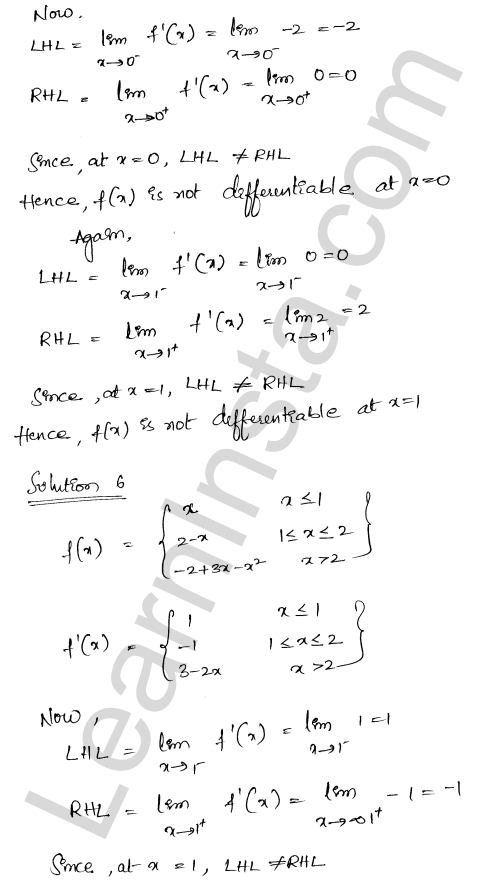 Now,
LHL = lim x→0⁻ f'(x) = lim x→0⁻ -2 = -2
RHL = lim x→0⁺ f'(x) = lim x→0⁺ 0 = 0
Since, at x=0, LHL ≠ RHL
Hence, f(x) is not differentiable at x=0
Again,
LHL = lim x→1⁻ f'(x) = lim x→1⁻ 0 = 0
RHL = lim x→1⁺ f'(x) = lim x→1⁺ 2 = 2
Since, at x=1, LHL ≠ RHL
Hence, f(x) is not differentiable at x=1
Solution 6
f(x) = { x x ≤ 1
2-x 1 ≤ x ≤ 2
-2+3x-x² x > 2 }
f'(x) = { 1 x ≤ 1
-1 1 ≤ x ≤ 2
3-2x x > 2 }
Now,
LHL = lim x→1⁻ f'(x) = lim x→1⁻ 1 = 1
RHL = lim x→1⁺ f'(x) = lim x→01⁺ -1 = -1
Since, at x = 1, LHL ≠ RHL
LearnInsta.com